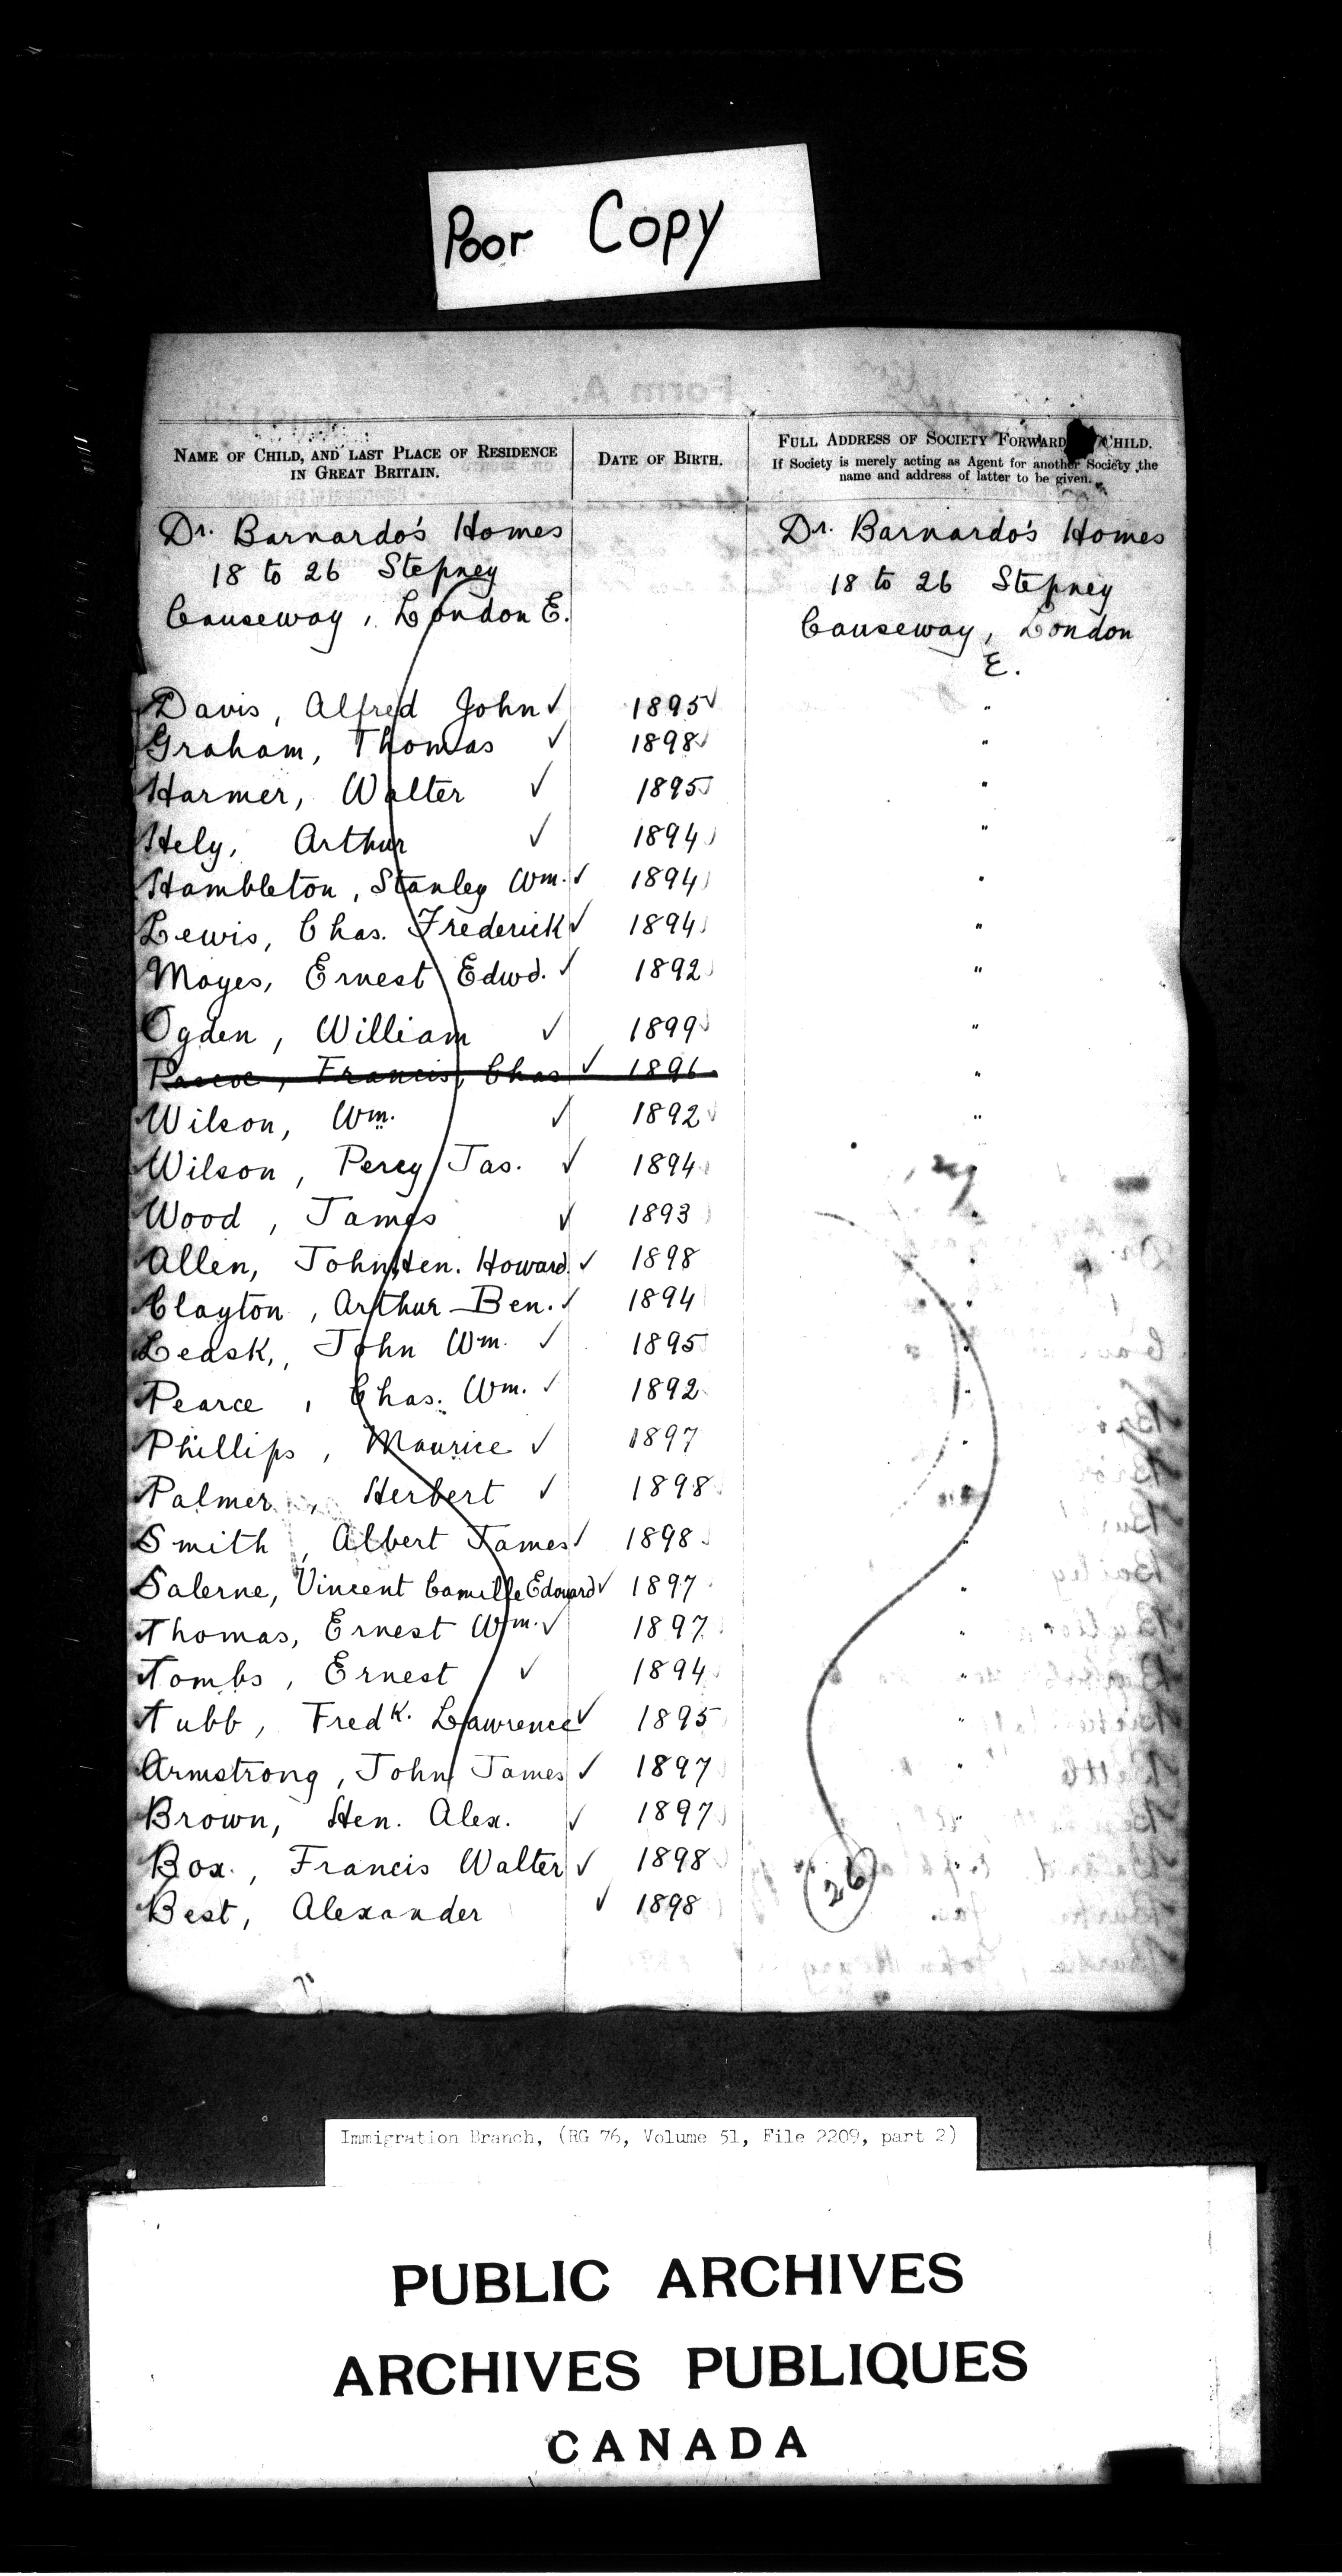 Poor Copy
NAME OF CHILD, AND LAST PLACE OF RESIDENCE
IN GREAT BRITAIN.
DATE OF BIRTH.
FULL ADDRESS OF SOCIETY FORWARD CHILD.
If Society is merely acting as Agent for another Society the
name and address of latter to be given.
Dr. Barnardo's Homes
18 to 26 Stepney
Causeway, London E.
Dr. Barnardo's Homes
18 to 26 Stepney
Causeway, London
E.
Davis, Alfred John ✓ 1895 ✓ "
Graham, Thomas ✓ 1898 ✓ "
Harmer, Walter ✓ 1895 "
Hely, Arthur ✓ 1894 "
Hambleton, Stanley Wm. ✓ 1894 "
Lewis, Chas. Frederick ✓ 1894 "
Moyes, Ernest Edwd. ✓ 1892 "
Ogden, William ✓ 1899 "
Pascoe, Francis, Chas ✓ 1896 "
Wilson, Wm. ✓ 1892 "
Wilson, Percy Jas. ✓ 1894 "
Wood, James ✓ 1893 "
Allen, John Hen. Howard. ✓ 1898 "
Clayton, Arthur Ben. ✓ 1894 "
Leask, John Wm. ✓ 1895 "
Pearce, Chas. Wm. ✓ 1892 "
Phillips, Maurice ✓ 1897 "
Palmer, Herbert ✓ 1898 "
Smith, Albert James ✓ 1898 "
Salerne, Vincent Camille Edouard ✓ 1897 "
Thomas, Ernest Wm. ✓ 1897 "
Tombs, Ernest ✓ 1894 "
Tubb, Fredk. Lawrence ✓ 1895 "
Armstrong, John James ✓ 1897 "
Brown, Hen. Alex. ✓ 1897 "
Box, Francis Walter ✓ 1898 "
Best, Alexander ✓ 1898
26
Immigration Branch, (RG 76, Volume 51, File 2209, part 2)
PUBLIC ARCHIVES
ARCHIVES PUBLIQUES
CANADA